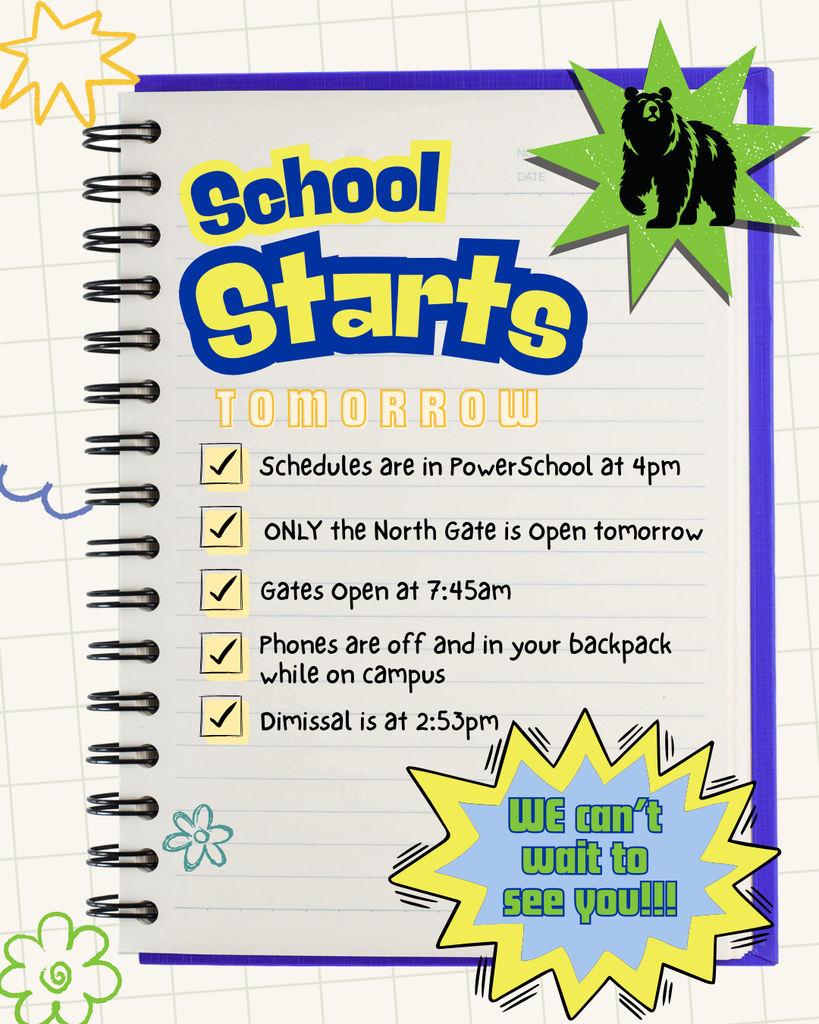 School
Starts
TOMORROW
DATE
Schedules are in PowerSchool at 4pm
ONLY the North Gate is Open tomorrow
Gates Open at 7:45am
Phones are off and in your backpack
while on campus
Dimissal is at 2:53pm
WE can't
wait to
see you!!!